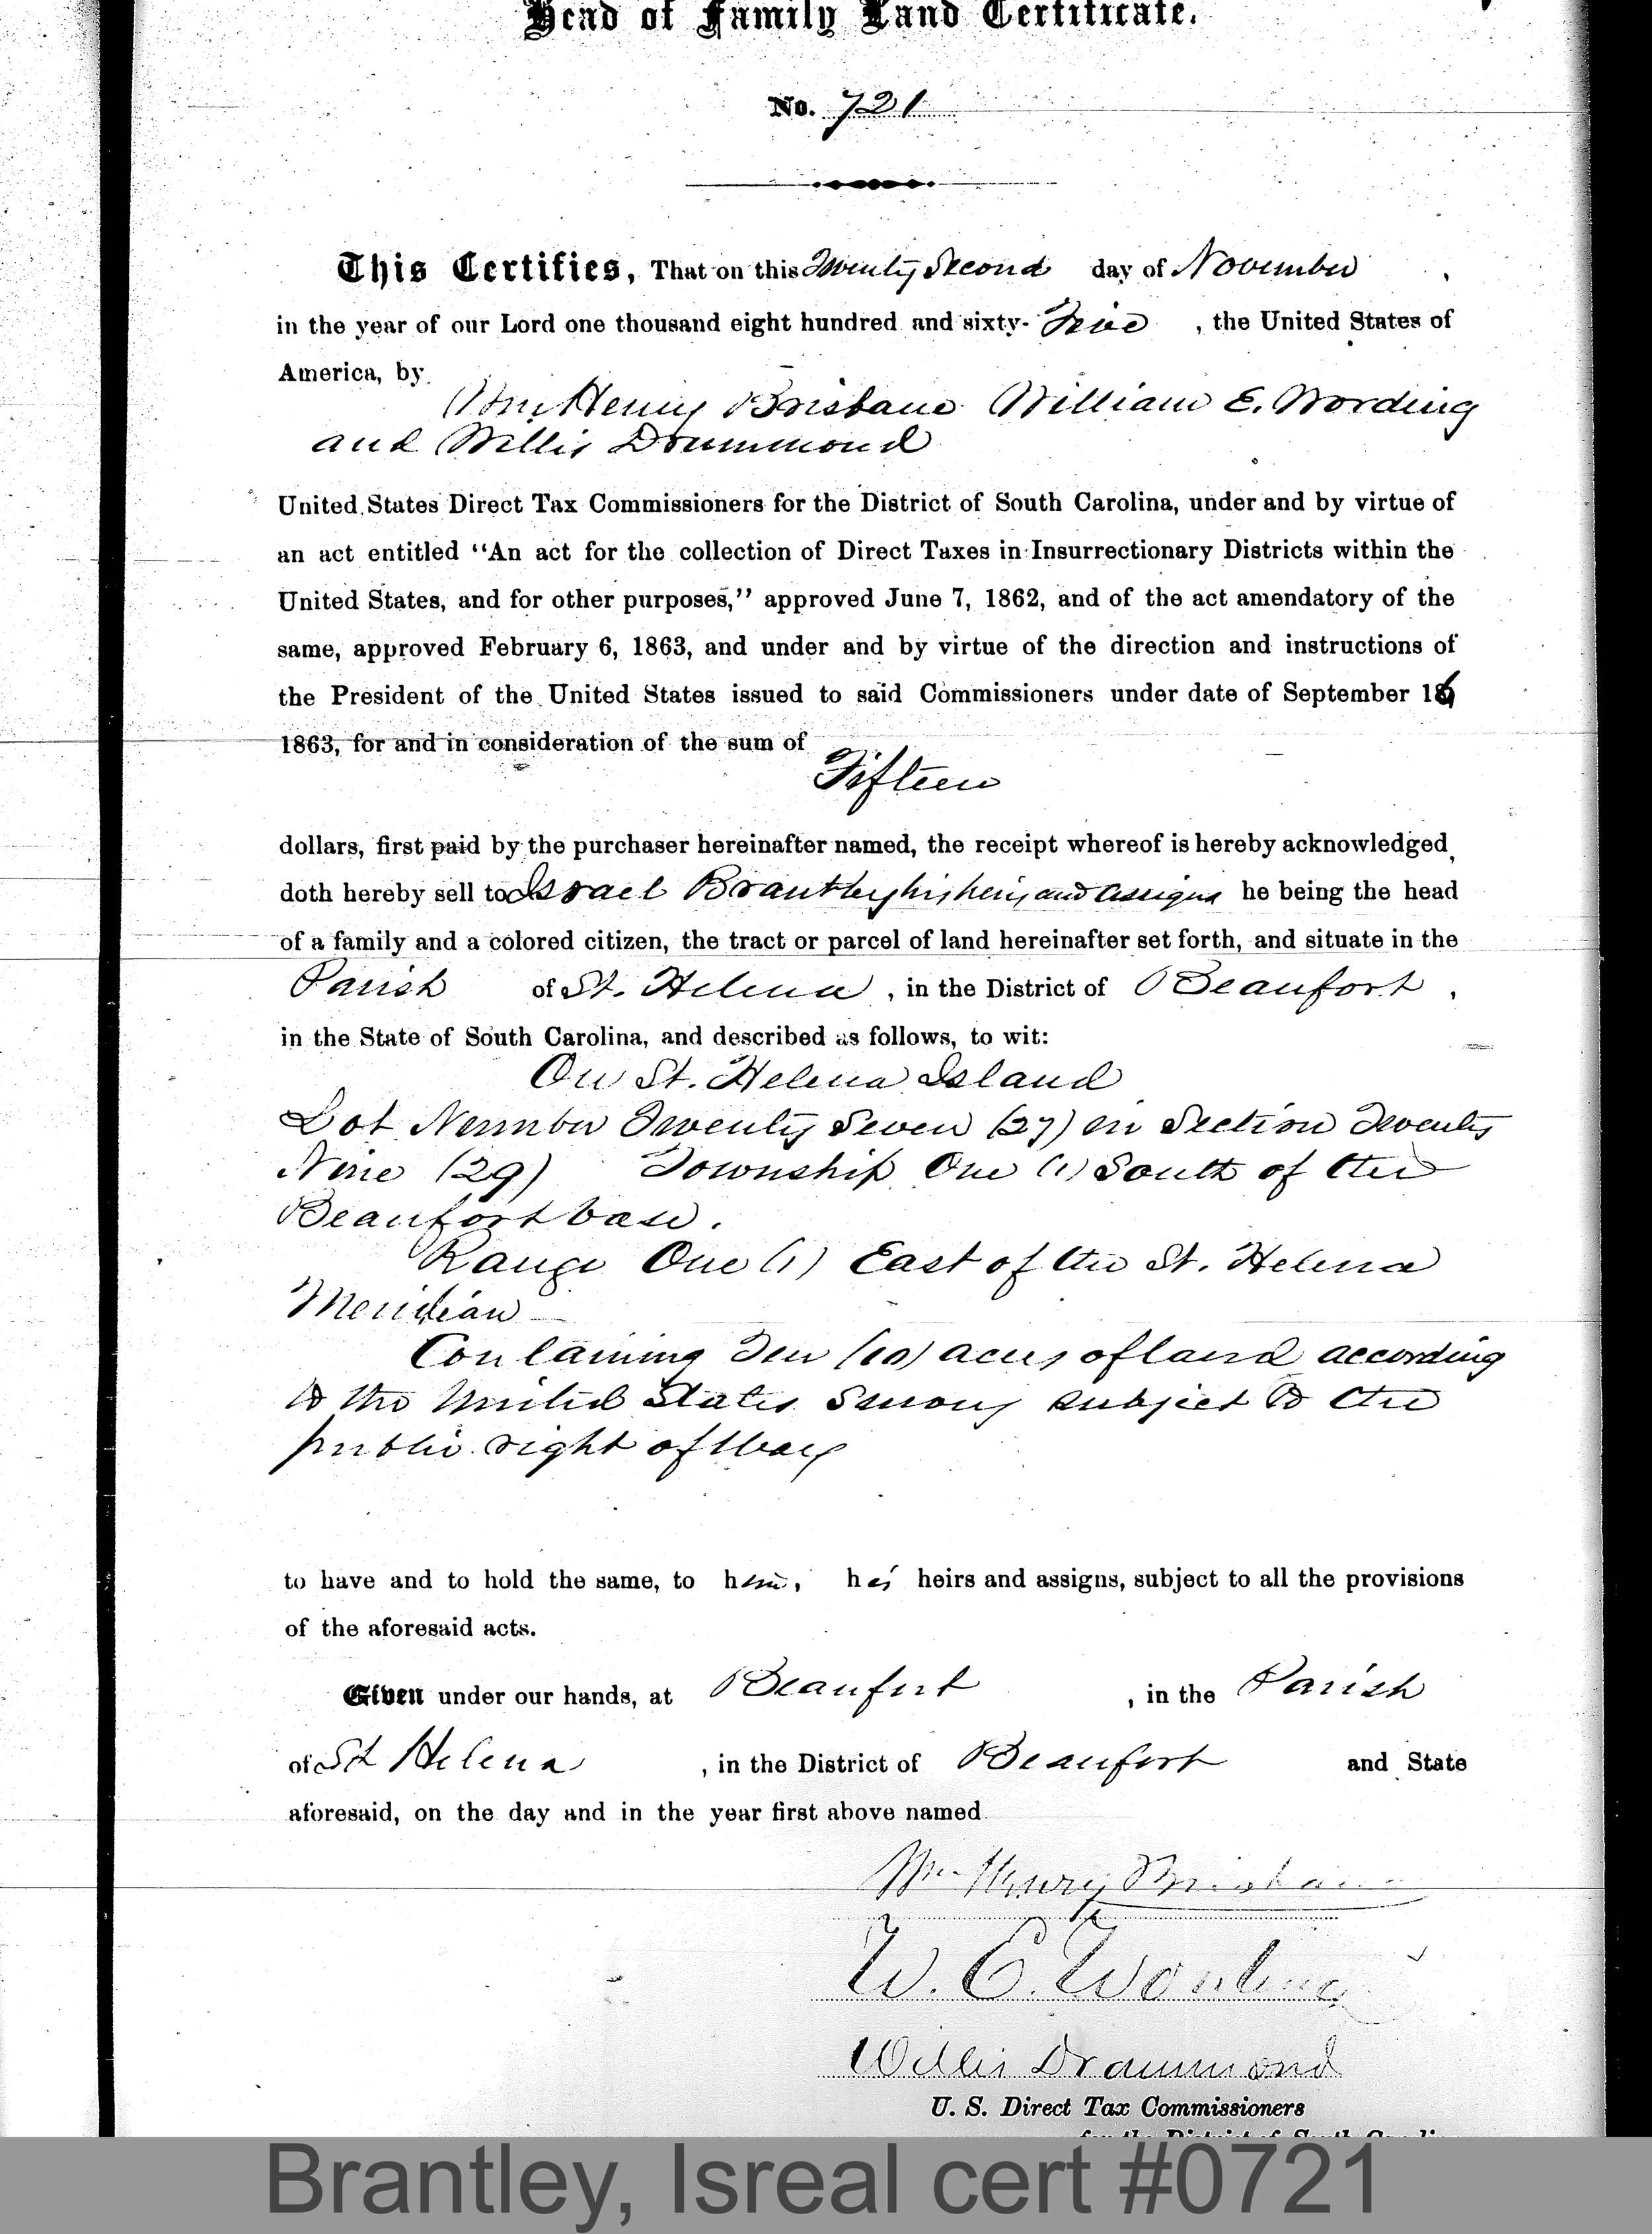 Head of Family Land Certificate.
No. 721
This Certifies, That on this Twenty Second day of November ,
in the year of our Lord one thousand eight hundred and sixty- Five , the United States of
America, by
Wm Henry Brisbane William E. Wording
and Willis Drummond
United States Direct Tax Commissioners for the District of South Carolina, under and by virtue of
an act entitled "An act for the collection of Direct Taxes in Insurrectionary Districts within the
United States, and for other purposes," approved June 7, 1862, and of the act amendatory of the
same, approved February 6, 1863, and under and by virtue of the direction and instructions of
the President of the United States issued to said Commissioners under date of September 16
1863, for and in consideration of the sum of
Fifteen
dollars, first paid by the purchaser hereinafter named, the receipt whereof is hereby acknowledged,
doth hereby sell to Israel Brantley his heirs and assigns he being the head
of a family and a colored citizen, the tract or parcel of land hereinafter set forth, and situate in the
Parish of St. Helena , in the District of Beaufort ,
in the State of South Carolina, and described as follows, to wit:
On St. Helena Island
Lot Number Twenty Seven (27) in Section Twenty
Nine (29) Township One (1) South of the
Beaufort base.
Range One (1) East of the St. Helena
Meridian
Containing Ten (10) acres of land according
to the United States Survey subject to the
public right of Way
to have and to hold the same, to him, his heirs and assigns, subject to all the provisions
of the aforesaid acts.
Given under our hands, at Beaufort , in the Parish
of St Helena , in the District of Beaufort and State
aforesaid, on the day and in the year first above named
Wm Henry Brisbane
W. E. Wording
Willis Drummond
U. S. Direct Tax Commissioners
for the District of South Carolina
Brantley, Isreal cert #0721